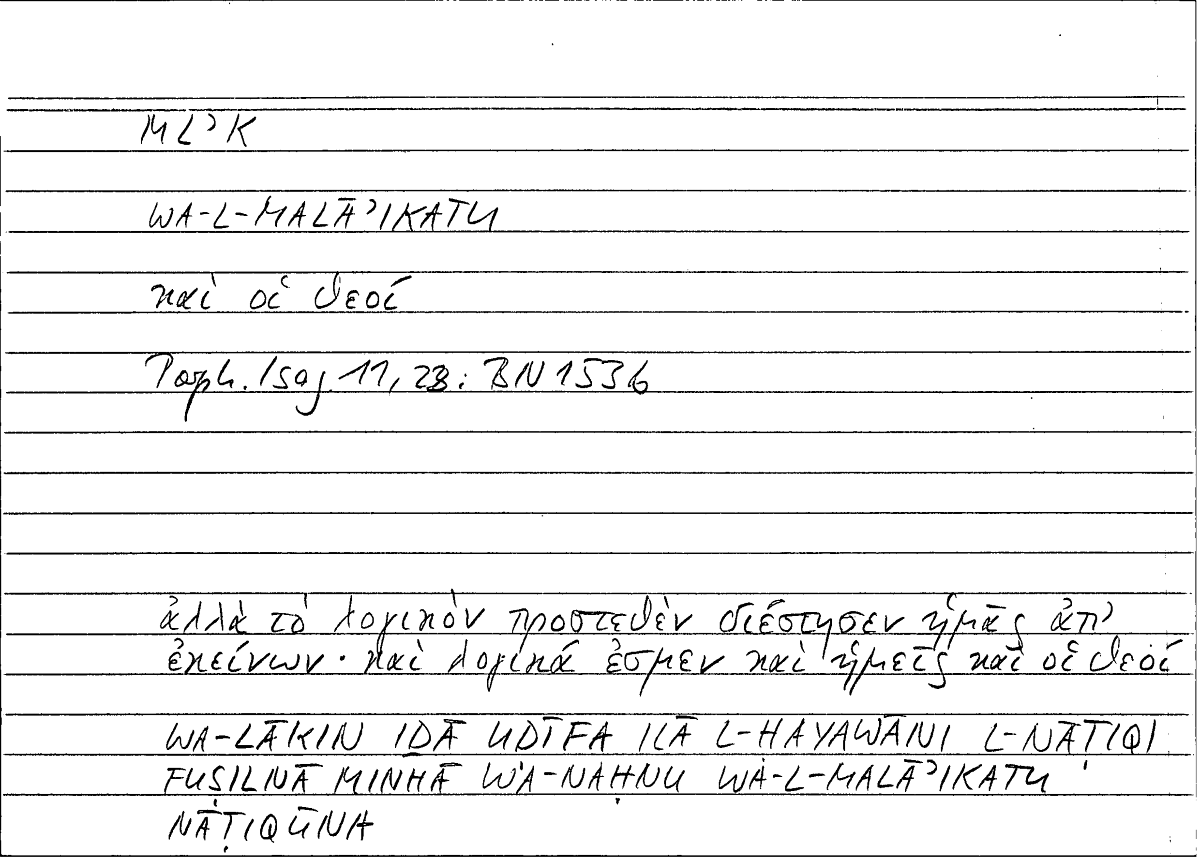 MLʾK
WA-L-MALĀʾIKATU
καὶ οἱ θεοί
Porph. Isag. 11, 23: BN 1536
ἀλλὰ τὸ λογικὸν προστεθὲν διέστησεν ἡμᾶς ἀπ'
ἐκείνων· καὶ λογικά ἐσμεν καὶ ἡμεῖς καὶ οἱ θεοί
WA-LĀKIN IḎĀ UḌĪFA ILĀ L-ḤAYAWĀNI L-NĀṬIQI
FUṢILNĀ MINHĀ WA-NAḤNU WA-L-MALĀʾIKATU
NĀṬIQŪNA